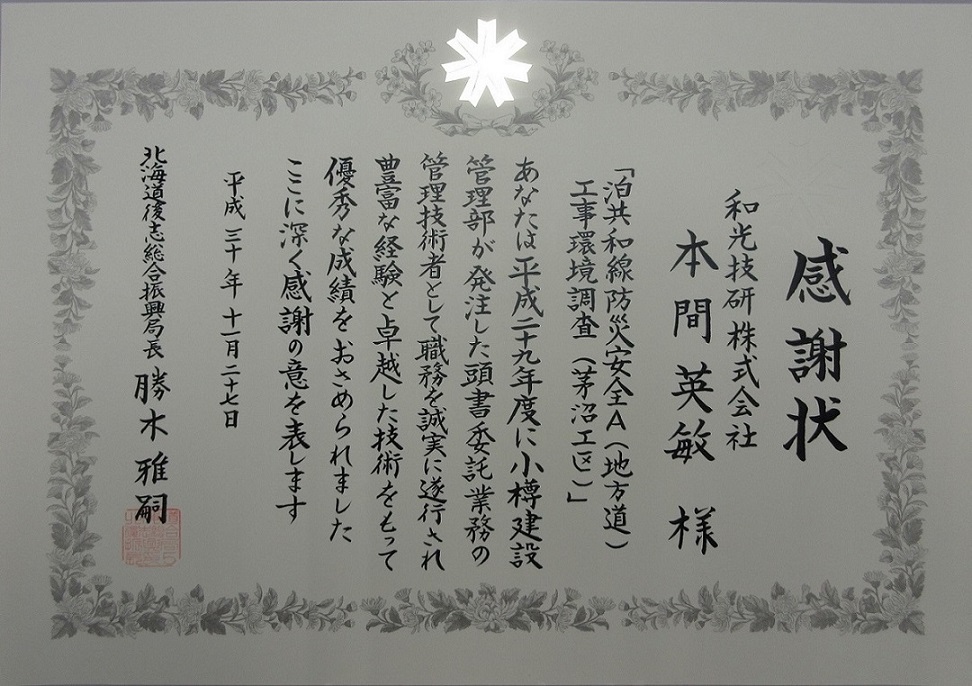 感謝状
和光技研株式会社
本間英敏 様
「泊共和線防災安全A(地方道)
工事環境調査(茅沼工区)」
あなたは平成二十九年度に小樽建設
管理部が発注した頭書委託業務の
管理技術者として職務を誠実に遂行され
豊富な経験と卓越した技術をもって
優秀な成績をおさめられました
ここに深く感謝の意を表します
平成三十年十一月二十七日
北海道後志総合振興局長 勝木雅嗣